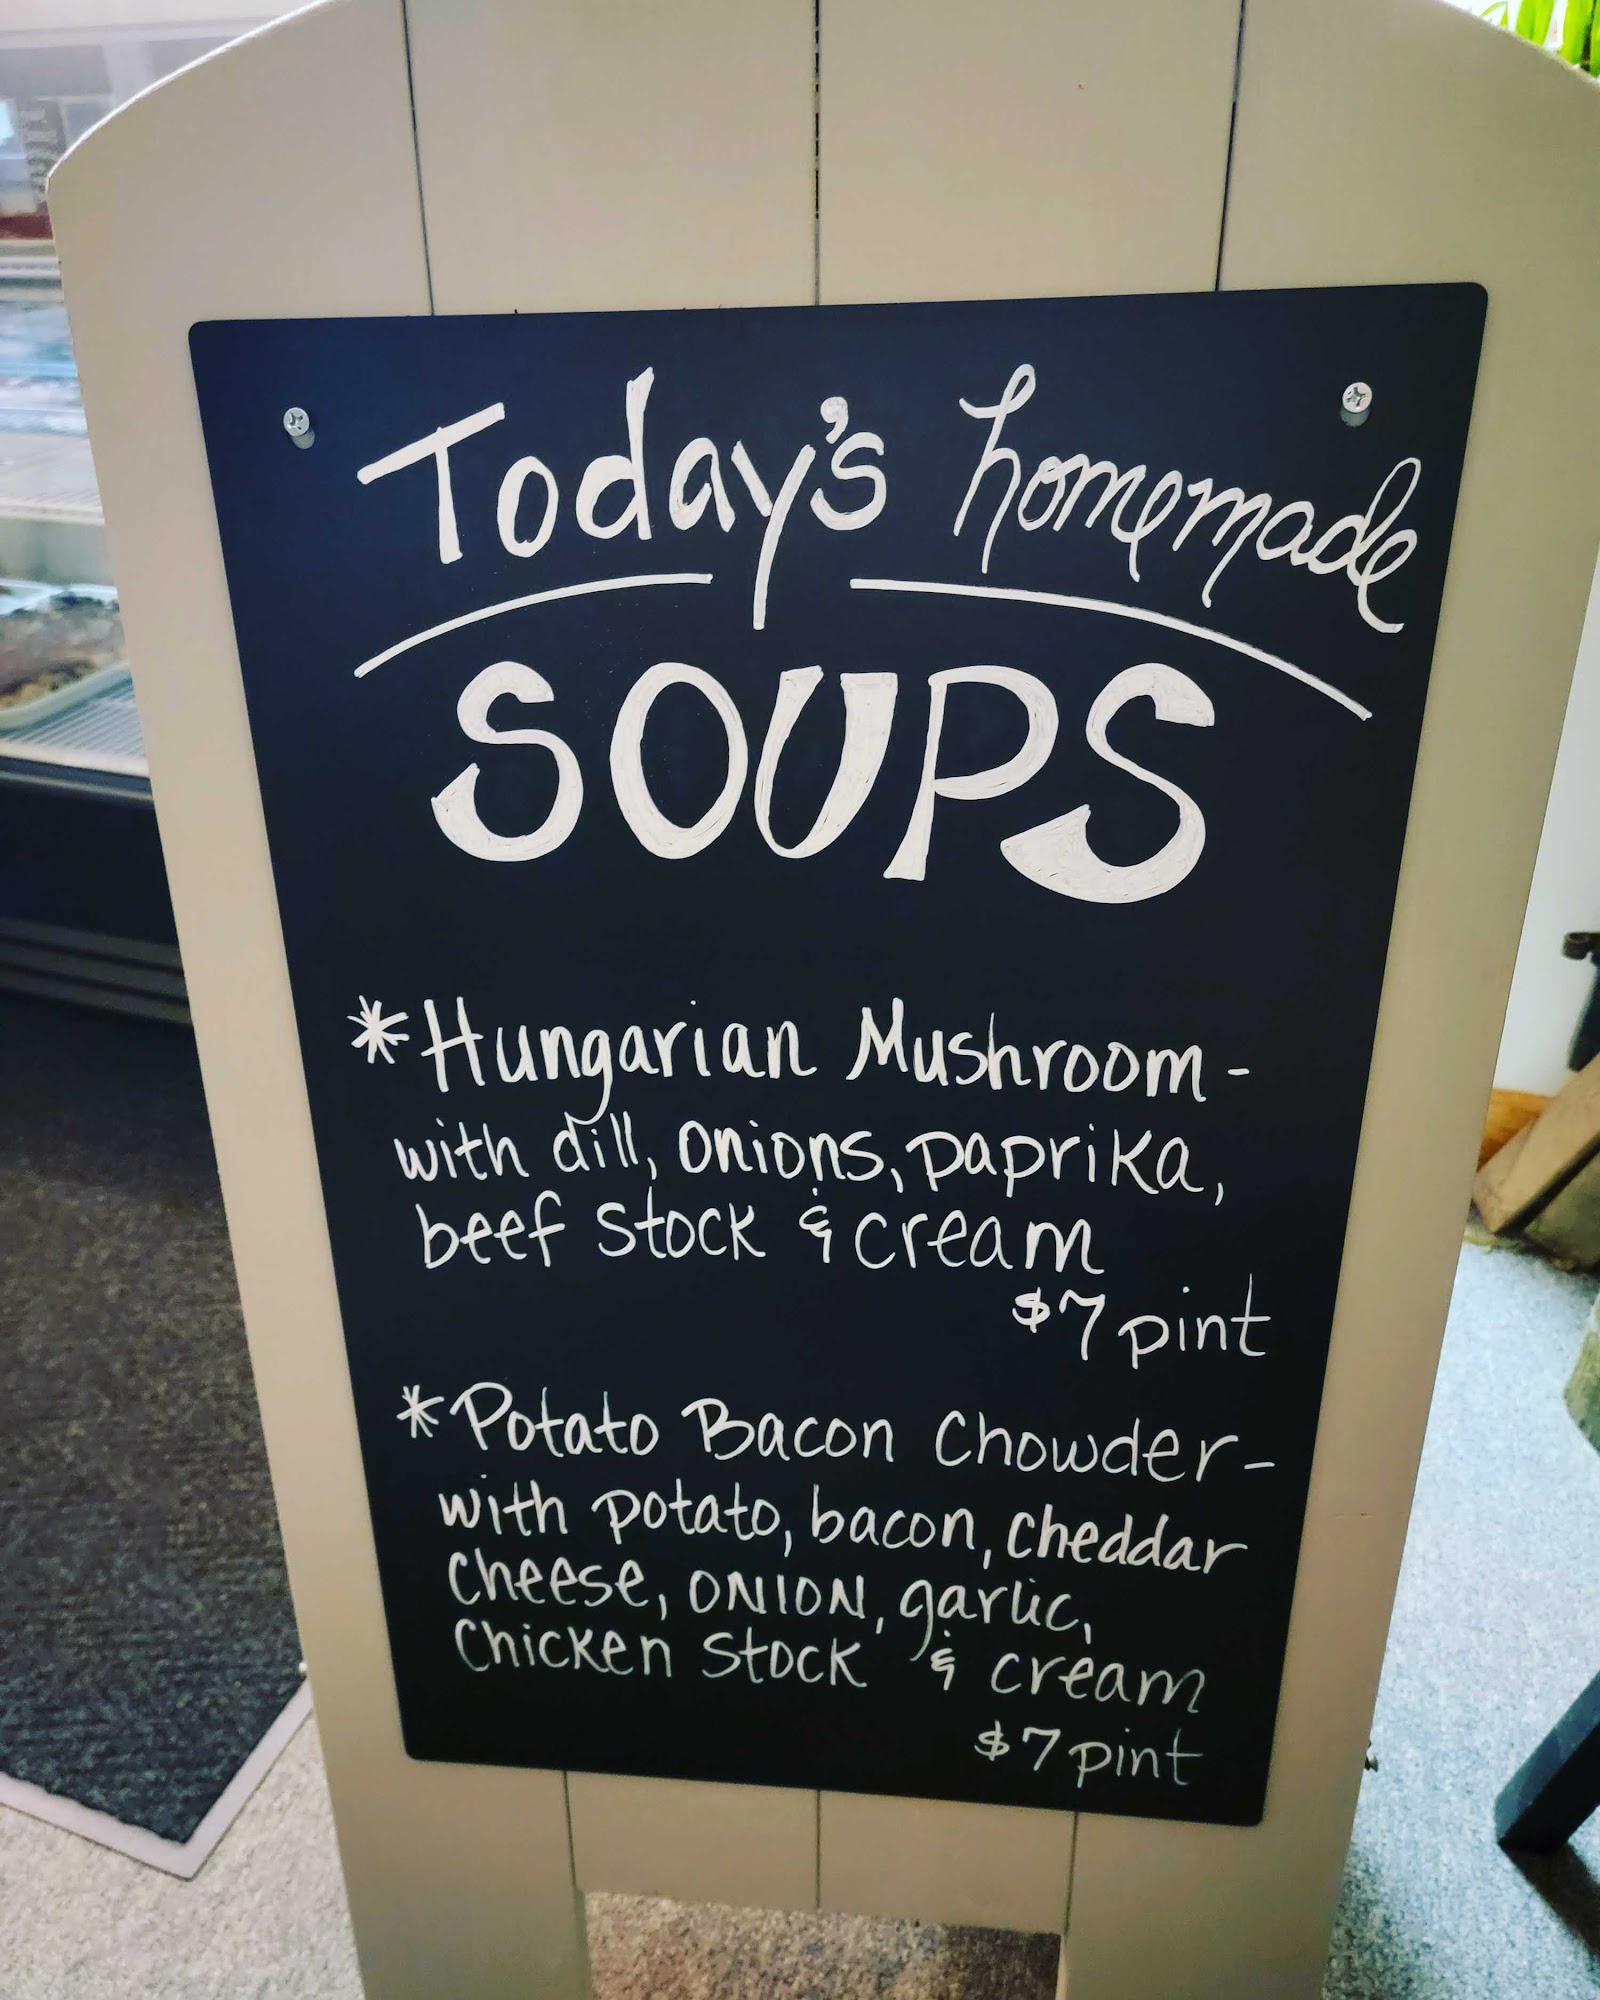 Today's homemade
SOUPS
*Hungarian Mushroom -
with dill, onions, paprika,
beef stock & cream
$7 pint
*Potato Bacon Chowder -
with potato, bacon, cheddar
cheese, ONION, garlic,
Chicken Stock & cream
$7 pint